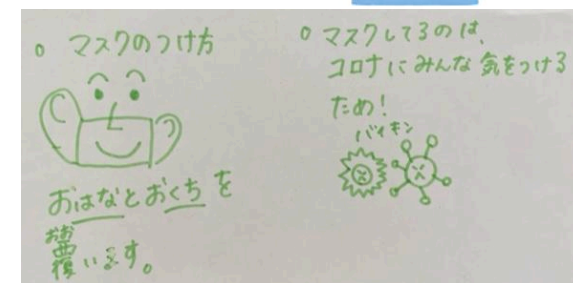 ○ マスクのつけ方
おはなとおくちを
おお
覆います。
○ マスクしてるのは、
コロナにみんな気をつける
ため！
バイキン